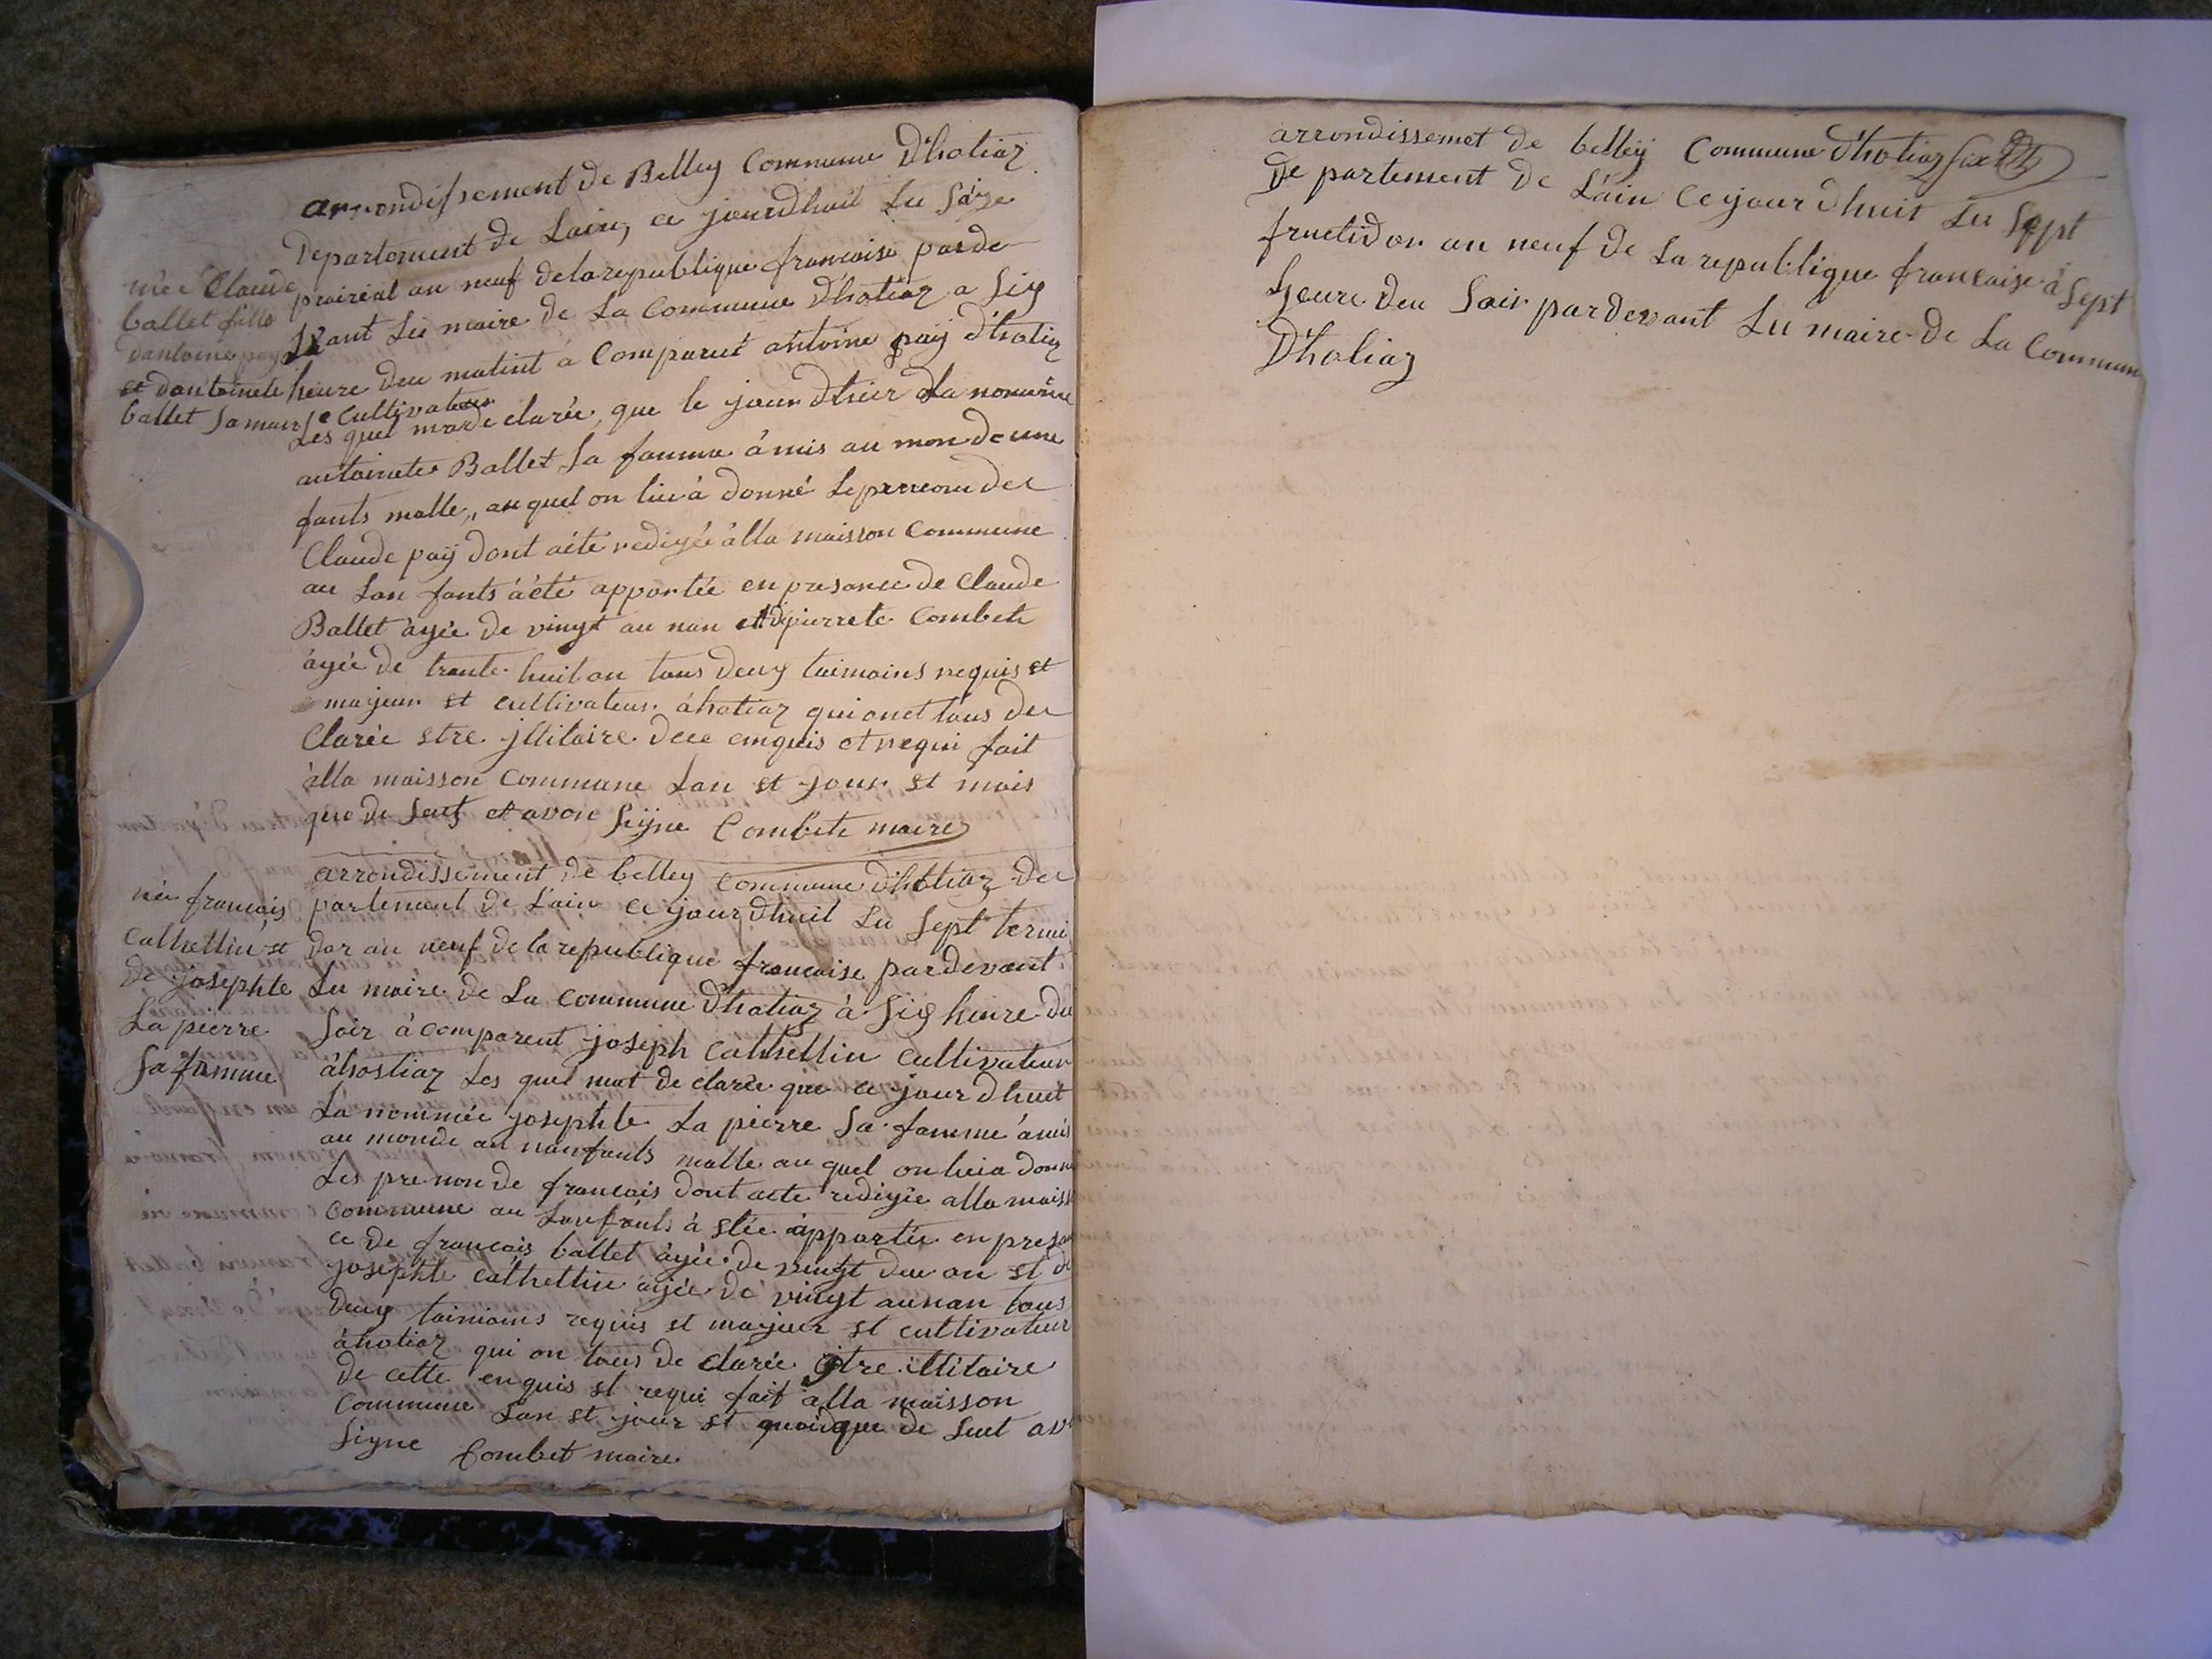 arrondissement de Belley Commune D'hotiaz
Departement de Lain, ce jourdhuit Lu Saize
prairéal an neuf delarepublique francaise parde
vant Lu maire de La Commune D'hotiaz a Six
heure deu matint à Comparut antoine pay d'hotiaz
Cultivateur
Les quel ma de clarée, que le jour d'hier La nommée
antoinete Ballet Sa famme à mis au monde une
fants malle, au quel on lui à donné Leprenom de
Claude paÿ dont aéte redigée àlla maisson Commune
au Lan fants àété apportée en presance de Claude
Ballet àgée de vingt au nan et de pierrete Combete
àgée de trante huit an tous deux taimoins requis et
majeur et cultivateur àhotiaz qui onet tous de
Clarée stre jllitaire dece enquis et requi fait
àlla maisson Commune Lan et jour et mois
que de Seus et avon Signe Combete maire
née Claude
ballet fille
dantoine pay
et dantoinete
ballet Samare
arrondissement de belley commune d'hotiaz de
partement de L'ain ce jour dhuit Lu Sept termi
dor an neuf de la republique francaise pardevant
Lu maire de La commune D'hotiaz à Six heure du
Soir à comparent joseph Cathellin cultivateur
àhostiaz Les quel mat de clarée que ce jour dhuit
La nommée josephte La pierre Sa famme à mis
au monde au nanfants malle au quel on luia donne
Les prenon de francais dont acte redigée alla maiss
Commune au Lanfants à stée apportée en presan
ce de francais ballet àgée de vingt deu an et de
josephte cathellin agée de vingt aunan tous
deux taimoins requis et majeur et cultivateur
àhotiaz qui on tous de clarée être illitaire
de cette enquis et requi fait àlla maisson
Commune Lan et jour et quoique de Suet av
Signe Combet maire
née francais
Cathellin et
de josephte
La pierre
Sa famme
arrondissemet de belleÿ Commune d'hotiaz
De partement de L'ain Cejour dhuit Lu Sept
fructidor an neuf de La republique francaise à Sept
heure deu Soir pardevant Lu maire de La Commun
D'hotiaz